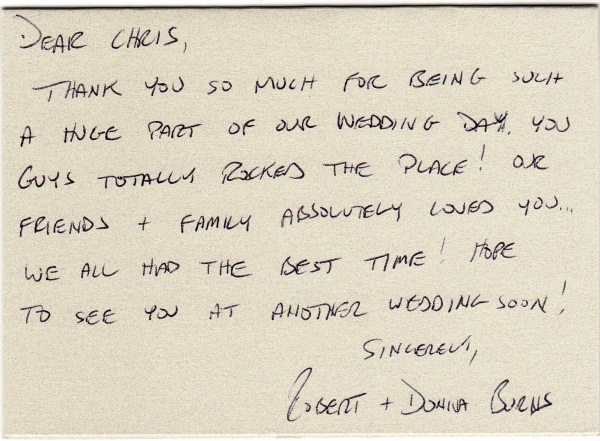 DEAR CHRIS,
THANK YOU SO MUCH FOR BEING SUCH
A HUGE PART OF OUR WEDDING DAY. YOU
GUYS TOTALLY ROCKED THE PLACE! OUR
FRIENDS + FAMILY ABSOLUTELY LOVED YOU...
WE ALL HAD THE BEST TIME! HOPE
TO SEE YOU AT ANOTHER WEDDING SOON!
SINCERELY,
ROBERT + DONNA BURNS